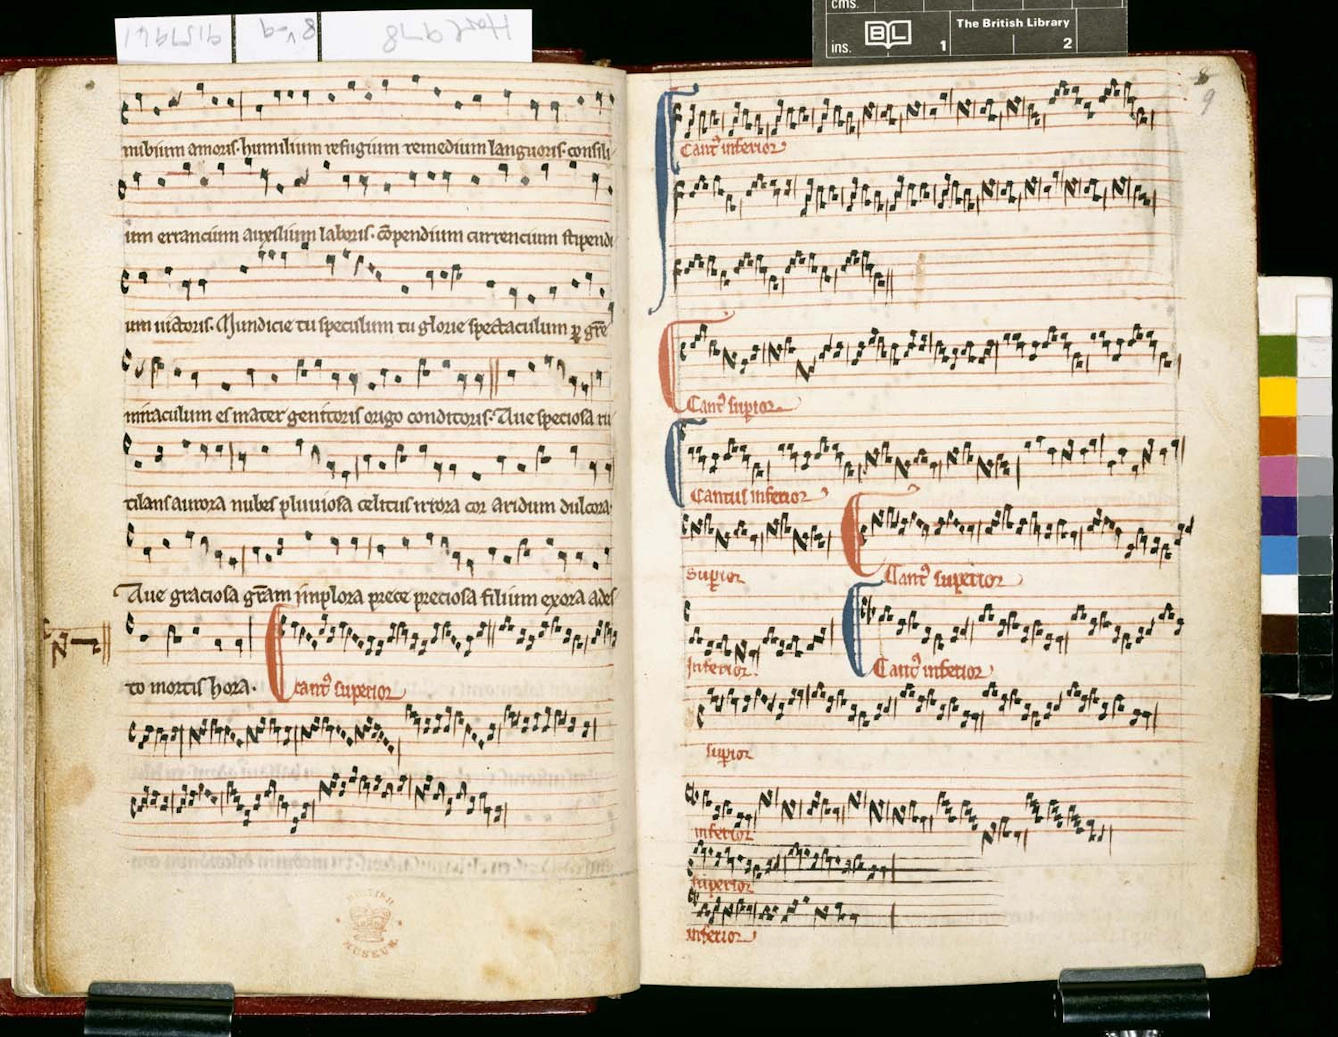 Harl 978
8v-9
9157961
cms.
ins.
BL
The British Library
1
2
9
nubium amoris· humilium refugium remedium languoris· consili
um errancium auxilium laboris· cōpendium currencium stipendi
um uictoris. Mundicie tu speculum tu glorie spectaculum
miraculum es mater genitoris origo conditoris· Aue speciosa ru
tilans aurora nubes pluuiosa celitus irrora cor aridum dulcora·
Aue graciosa gr̄am implora prece preciosa filium exora ades
to mortis hora·
Cant᾿ superior
BRITISH
MUSEUM
Cant᾿ inferior
Cant᾿ supior
Cantus inferior
supior
Cant᾿ superior
Inferior
Cant᾿ inferior
supior
inferior
superior
inferior